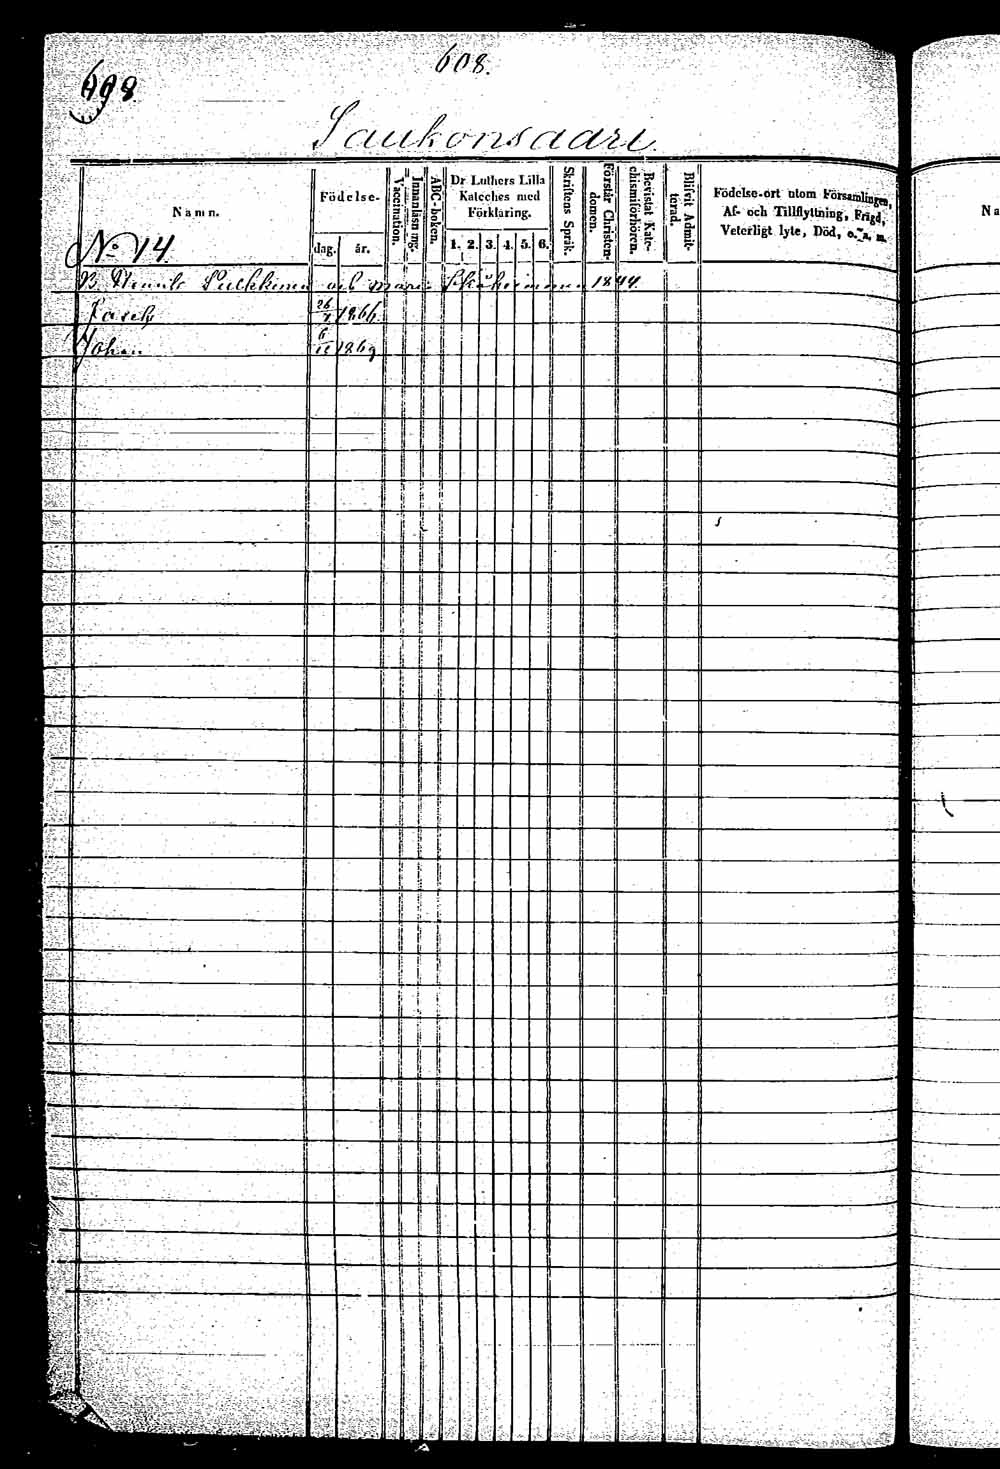 608.
698
Saukonsaari
Namn.
Födelse-
dag. år.
Vaccination.
Innanläsning.
ABC-boken.
Dr Luthers Lilla
Kateches med
Förklaring.
1. 2. 3. 4. 5. 6.
Skriftens Språk.
Förstår Christen-
domen.
Bevistat Kate-
chismiförhören.
Blifvit Admit-
terad.
Födelse-ort utom Församlingen,
Af- och Tillflyttning, Frägd,
Veterligt lyte, Död, o. s. m.
Na
No 14
B. Henrik Pulkkinen och Maria 1844
26/7 1866
Johan 1869